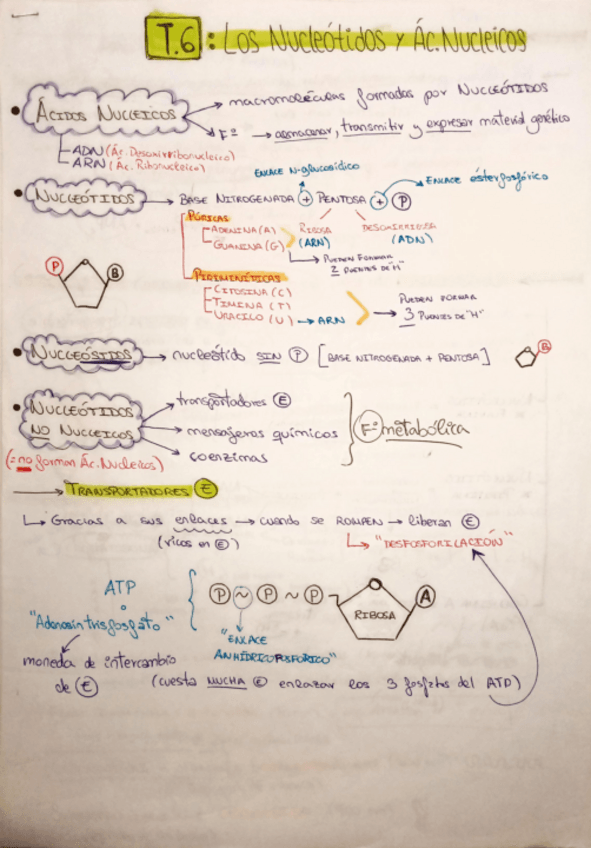 T.6 : Los Nucleótidos y Ác. Nucleicos
• Ácidos Nucleicos → macromoléculas formadas por NUCLEÓTIDOS
→ Fº → almacenar, transmitir y expresar material genético
ADN (Ác. Desoxirribonucleico)
ARN (Ác. Ribonucleico)
ENLACE N-glucosídico
ENLACE ésterfosfórico
• Nucleótidos → BASE NITROGENADA + PENTOSA + P
PÚRICAS
ADENINA (A)
GUANINA (G)
RIBOSA
(ARN)
DESOXIRRIBOSA
(ADN)
PUEDEN FORMAR
2 PUENTES DE "H"
P
B
PIRIMIDÍNICAS
CITOSINA (C)
TIMINA (T)
URACILO (U) → ARN
PUEDEN FORMAR
3 PUENTES DE "H"
• Nucleósidos → nucleótido SIN P [BASE NITROGENADA + PENTOSA]
B
• Nucleótidos
NO NUCLEICOS
(= no forman Ác. Nucleicos)
transportadores E
mensajeros químicos
coenzimas
Fº metabólica
→ TRANSPORTADORES E
↳ Gracias a sus enlaces → cuando se ROMPEN → liberan E
(ricos en E)
↳ "DESFOSFORILACIÓN"
ATP
o
"Adenosin trifosfato"
P ~ P ~ P
RIBOSA
A
"ENLACE
ANHÍDRICO FOSFÓRICO"
moneda de intercambio
de E
(cuesta MUCHA E enlazar los 3 fosfatos del ATP)